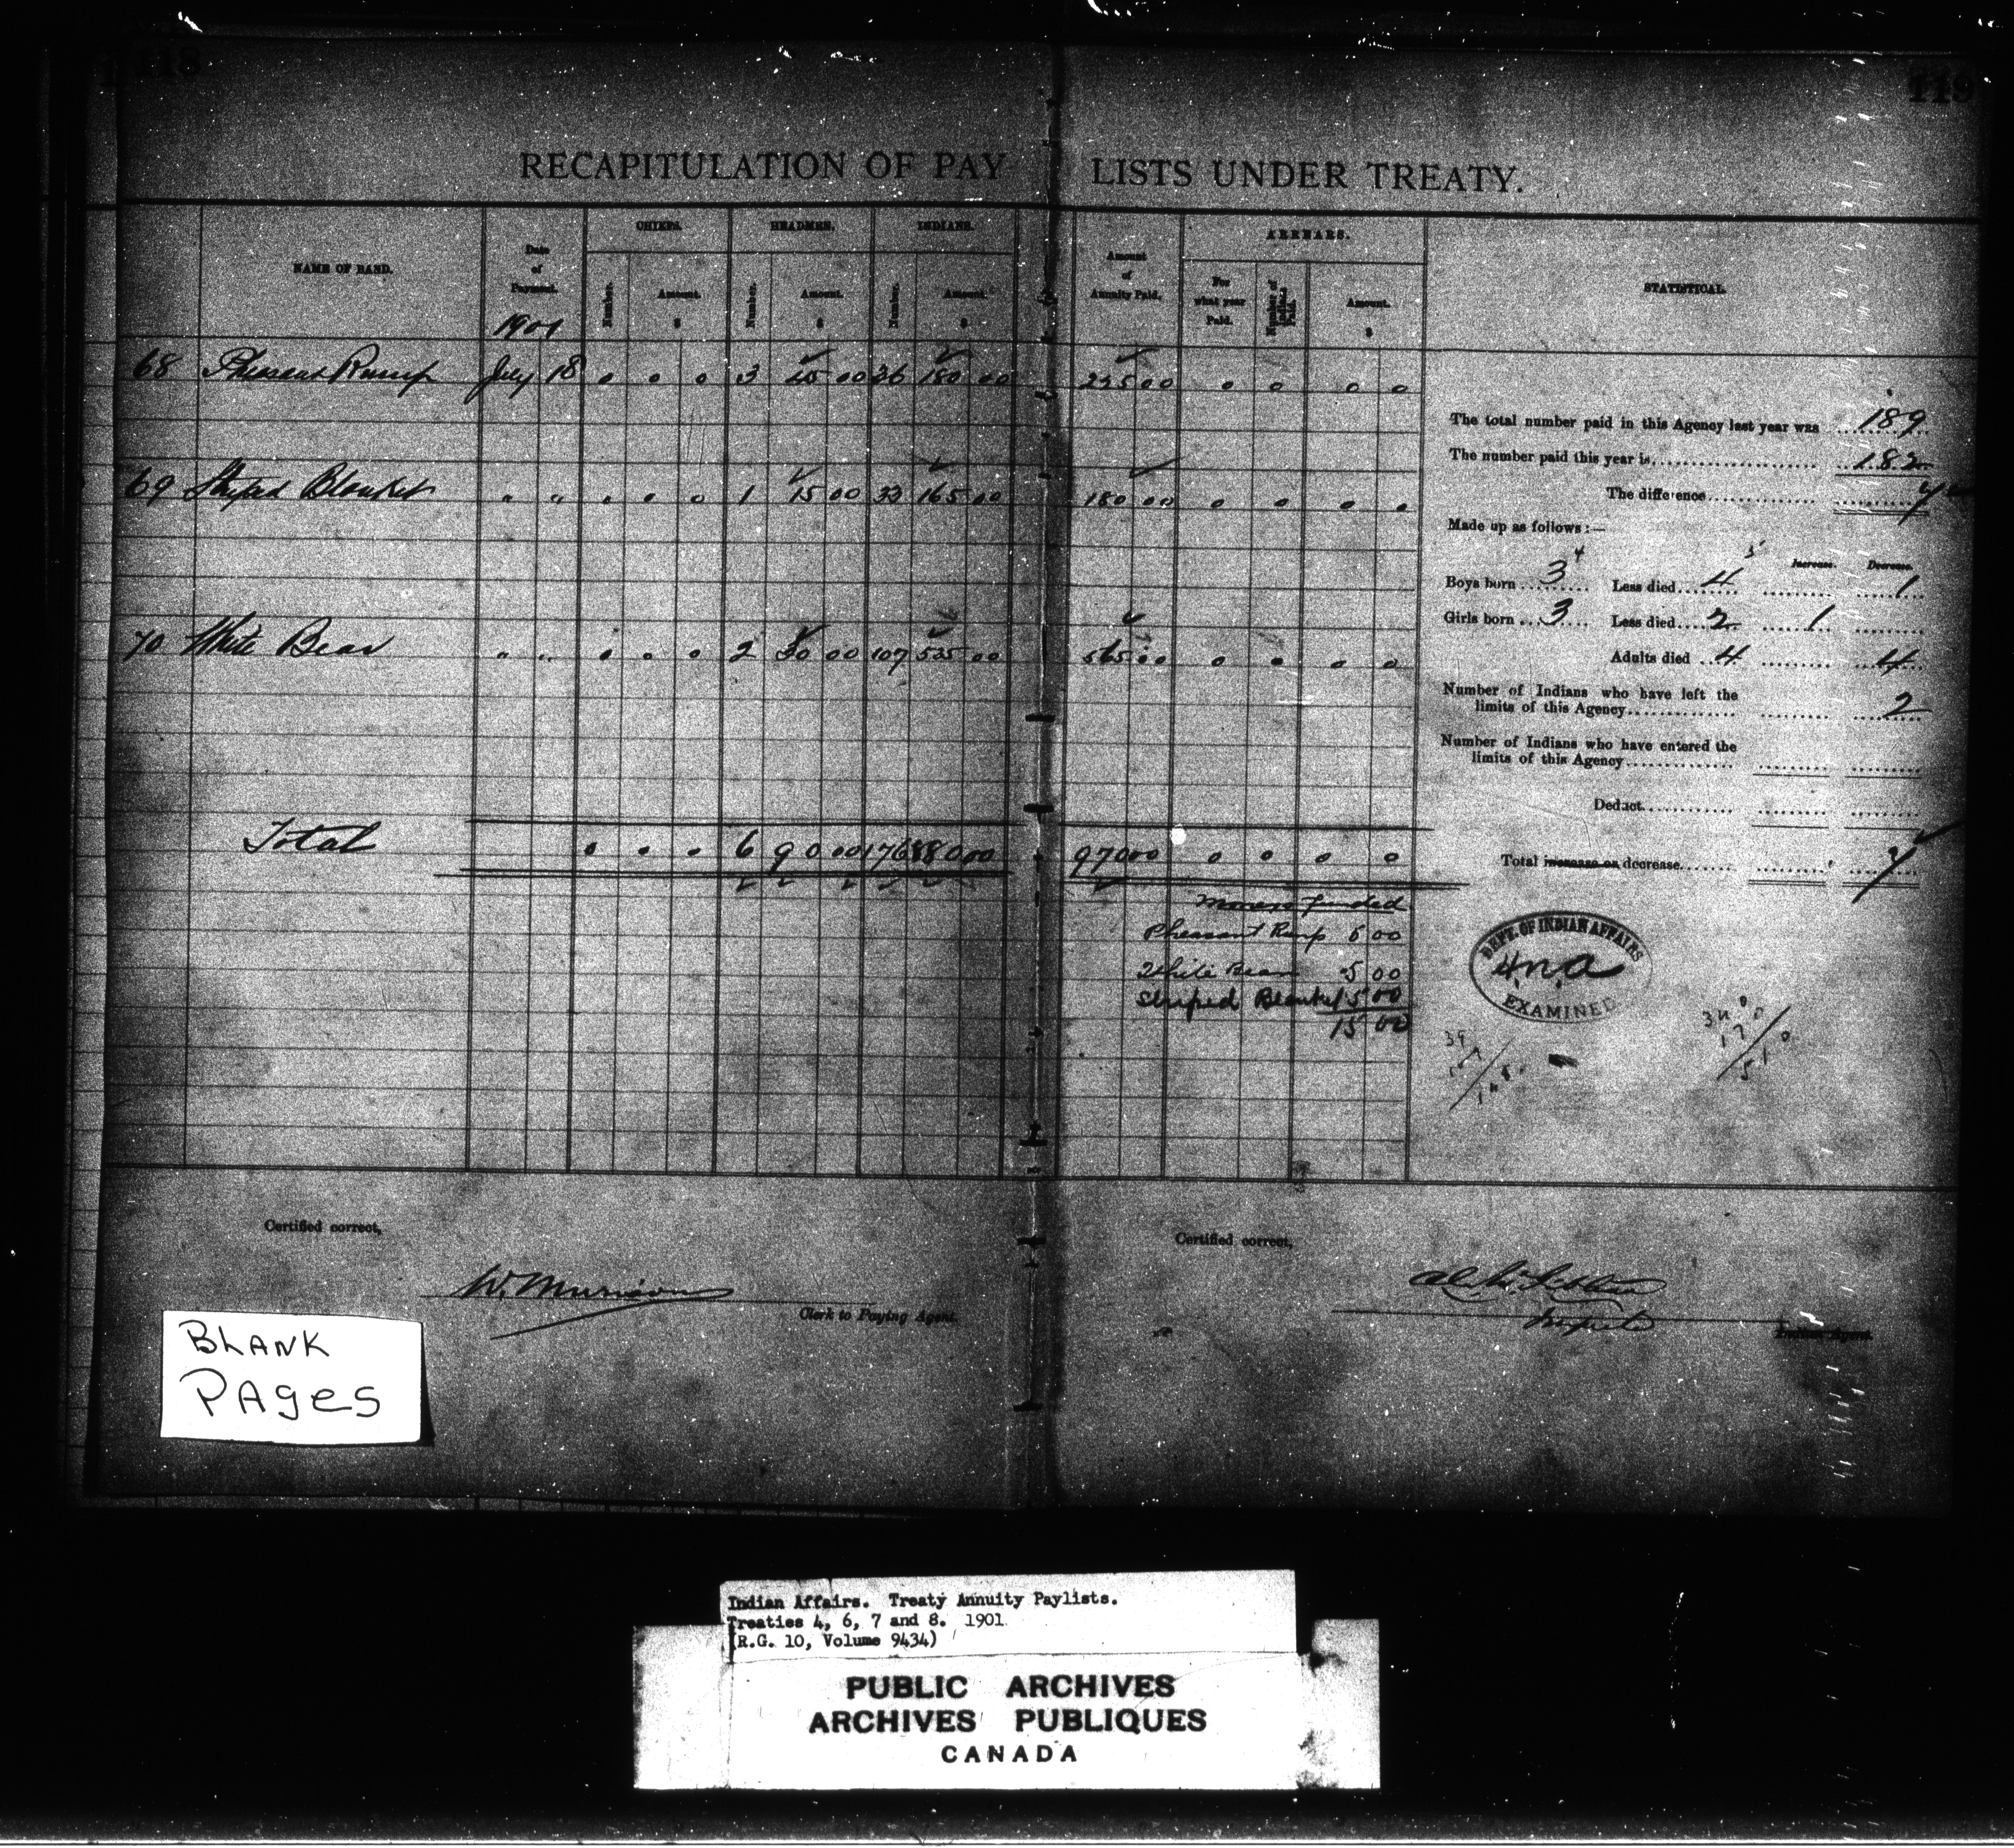 118
119
RECAPITULATION OF PAY LISTS UNDER TREATY.
NAME OF BAND. Date of Payment. 1901 CHIEFS. Number. Amount. $ HEADMEN. Number. Amount. $ INDIANS. Number. Amount. $ Amount of Annuity Paid. ARREARS. For what year Paid. Number of Indians Paid. Amount. $ STATISTICAL.
68 Pheasant Rump July 18 0 0 0 3 45 00 36 180 00 225 00 0 0 0 0
69 Striped Blanket " " 0 0 0 1 15 00 33 165 00 180 00 0 0 0 0
70 White Bear " " 0 0 0 2 30 00 107 535 00 565 00 0 0 0 0
Total 0 0 0 6 90 00 176 880 00 970 00 0 0 0 0
The total number paid in this Agency last year was 189
The number paid this year is 182
The difference 7
Made up as follows:—
Increase. Decrease.
4 5
Boys born 3 Less died 4 1
Girls born 3 Less died 2 1
Adults died 4 4
Number of Indians who have left the
limits of this Agency 2
Number of Indians who have entered the
limits of this Agency
Deduct
Total increase or decrease 7
Moneys funded
Pheasant Rump 5 00
White Bear 5 00
Striped Blanket 5 00
15 00
DEPT. OF INDIAN AFFAIRS
EXAMINED
34
17
510
Certified correct,
W. Murison
Clerk to Paying Agent.
Certified correct,
Indian Agent.
BLANK
PAges
Indian Affairs. Treaty Annuity Paylists.
Treaties 4, 6, 7 and 8. 1901
(R.G. 10, Volume 9434)
PUBLIC ARCHIVES
ARCHIVES PUBLIQUES
CANADA